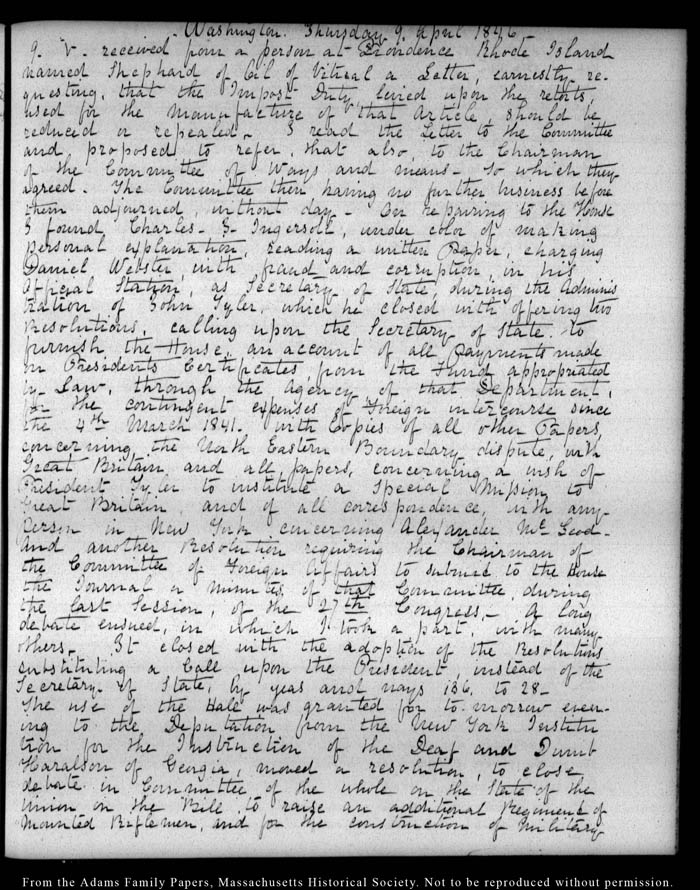 Washington. Thursday 9. April 1846-
9. V. received from a person at Providence Rhode Island
named Shephard of Oil of Vitreal a Letter, earnestly re-
questing, that the Impost Duty levied upon the retorts,
used for the manufacture of that Article, should be
reduced or repealed. I read the Letter to the Committee
and proposed to refer, that also, to the Chairman
of the Committee of Ways and means- To which they
agreed. The Committee then having no further business before
them adjourned, without day- On repairing to the House
I found Charles- J- Ingersoll, under color of making
personal explanation, reading a written Paper, charging
Daniel Webster with fraud and corruption, in his
Official Station, as Secretary of State, during the Adminis
tration of John Tyler, which he closed with offering two
Resolutions, calling upon the Secretary of State. to
furnish the House, an account of all Payments made
on Presidents Certificates, from the Fund appropriated
by Law, through the Agency of that Department,
for the contingent expenses of Foreign intercourse since
the 4th March 1841. with Copies of all other Papers,
concerning the North Eastern Boundary dispute, with
Great Britain and all papers, concerning a wish of
President Tyler to institute a Special Mission to
Great Britain and of all correspondence, with any-
Person in New York concerning Alexander Mc Leod-
And another Resolution requiring the Chairman of
the Committee of Foreign Affairs to submit to the House
the Journal or minutes of that Committee, during
the last Session, of the 27th Congress,- A long
debate ensued, in which I took a part, with many
others. It closed with the adoption of the Resolutions
substituting a Call upon the President instead of the
Secretary of State, by yeas and nays 136, to 28-
The use of the Hale was granted for to-morrow even-
ing to the Deputation from the New York Institu
tion for the Instruction of the Deaf and Dumb
Haralson of Georgia, moved a resolution, to close
debate in Committee of the whole on the State of the
Union on the Bill, to raise an additional Regiment of
Mounted Riflemen, and for the construction of Military
From the Adams Family Papers, Massachusetts Historical Society. Not to be reproduced without permission.